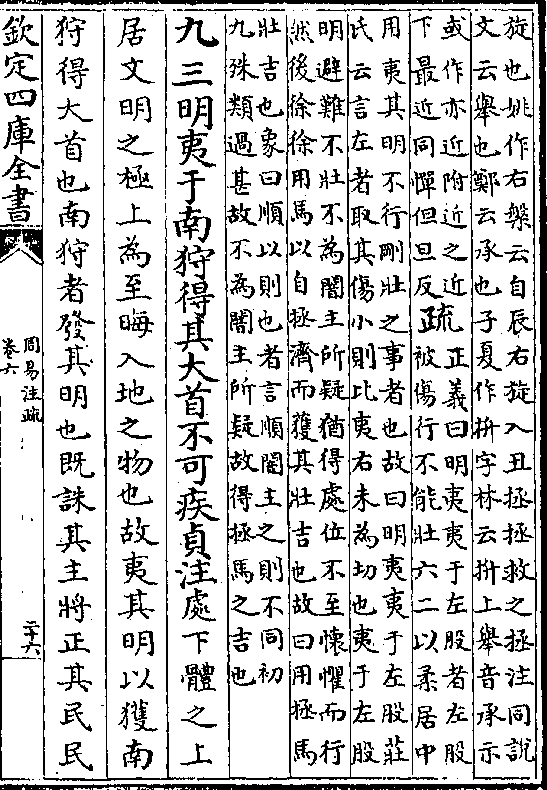 旋也姚作右槃云自辰右旋入丑拯拯救之拯注同說
文云舉也鄭云承也子夏作抍字林云抍上舉音承示
或作亦近附近之近
下最近同憚但旦反
疏
正義曰明夷夷于左股者左股
被傷行不能壯六二以柔居中
用夷其明不行剛壯之事者也故曰明夷夷于左股莊
氏云言左者取其傷小則比夷右未為切也夷于左股
明避難不壯不為闇主所疑猶得處位不至懷懼而行
然後徐徐用馬以自拯濟而獲其壯吉也故曰用拯馬
壯吉也象曰順以則也者言順闇主之則不同初
九殊類過甚故不為闇主所疑故得拯馬之吉也
九三明夷于南狩得其大首不可疾貞注處下體之上
居文明之極上為至晦入地之物也故夷其明以獲南
狩得大首也南狩者發其明也既誅其主將正其民民
欽定四庫全書
周易注疏
卷六
二十六